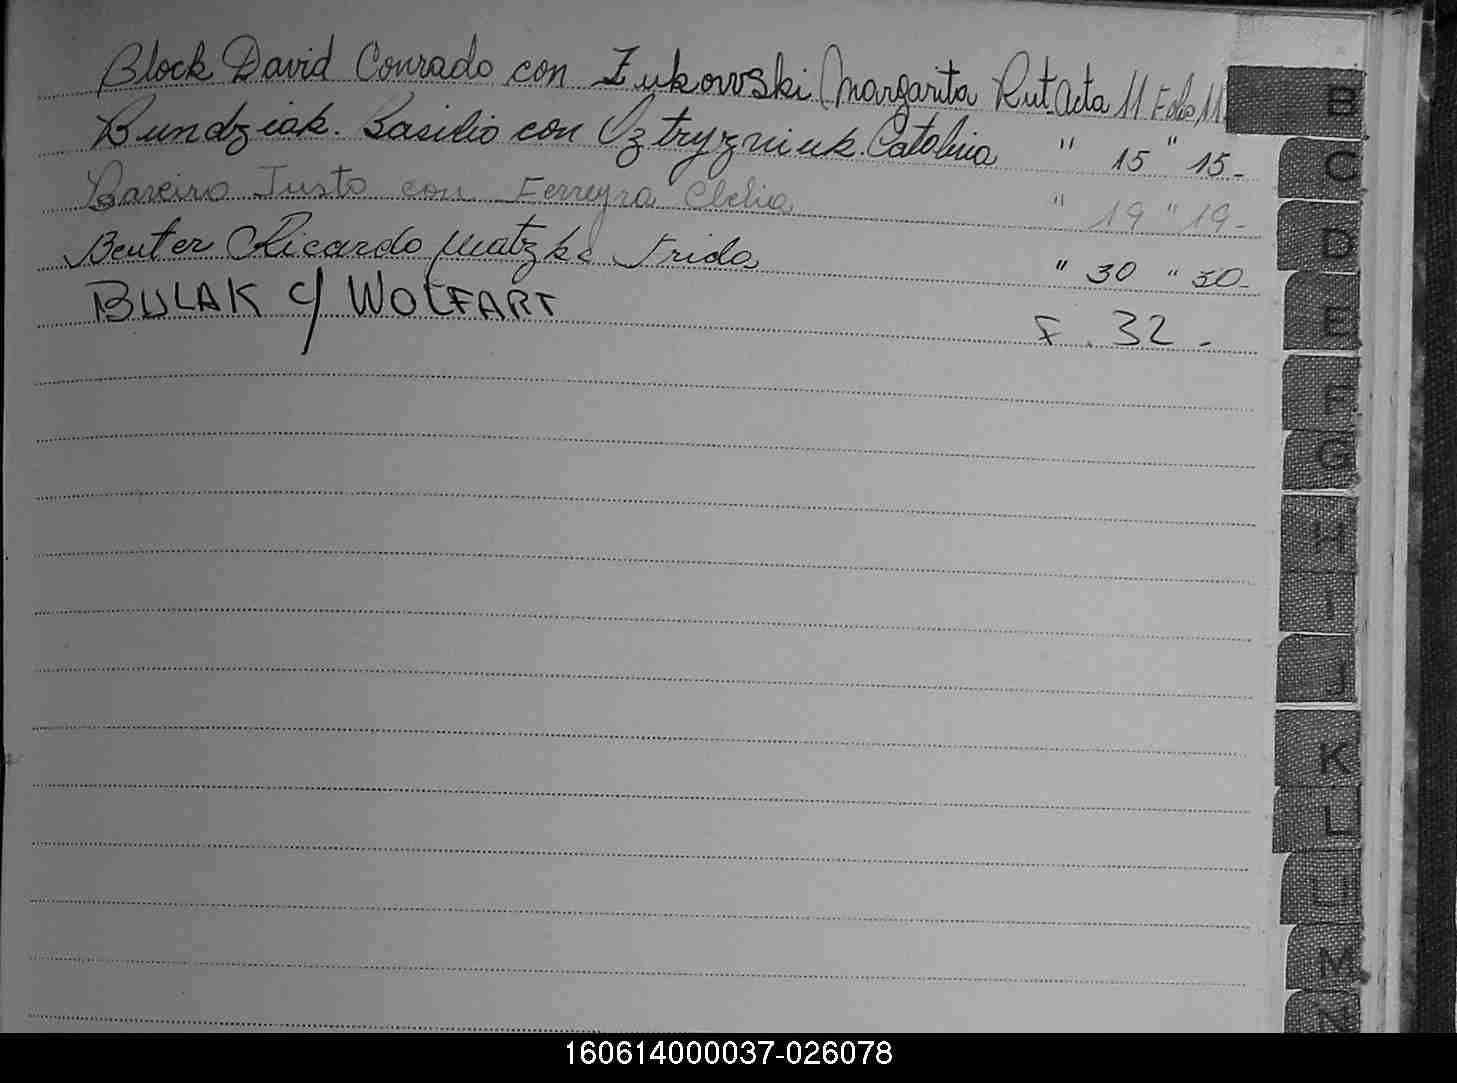 Block David Conrado con Zukowski Margarita Rut Acta 11 Folio 11
Bundziak. Basilio con Oztryzniuk Catalina " 15 " 15-
Bareiro Justo con Ferreyra Clelia " 19 " 19-
Beuter Ricardo Matzke Frida " 30 " 30-
BULAK c/ WOLFART F. 32-
B
C
D
E
F
G
H
I
J
K
L
LL
M
N
160614000037-026078